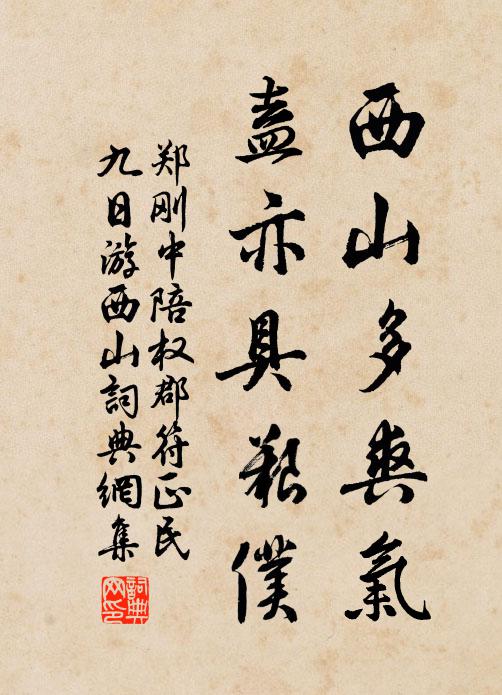 西山多爽氣
盍亦具艱僕
郑刚中陪权郡符正民
九日游西山詞典網集
詞典
网印